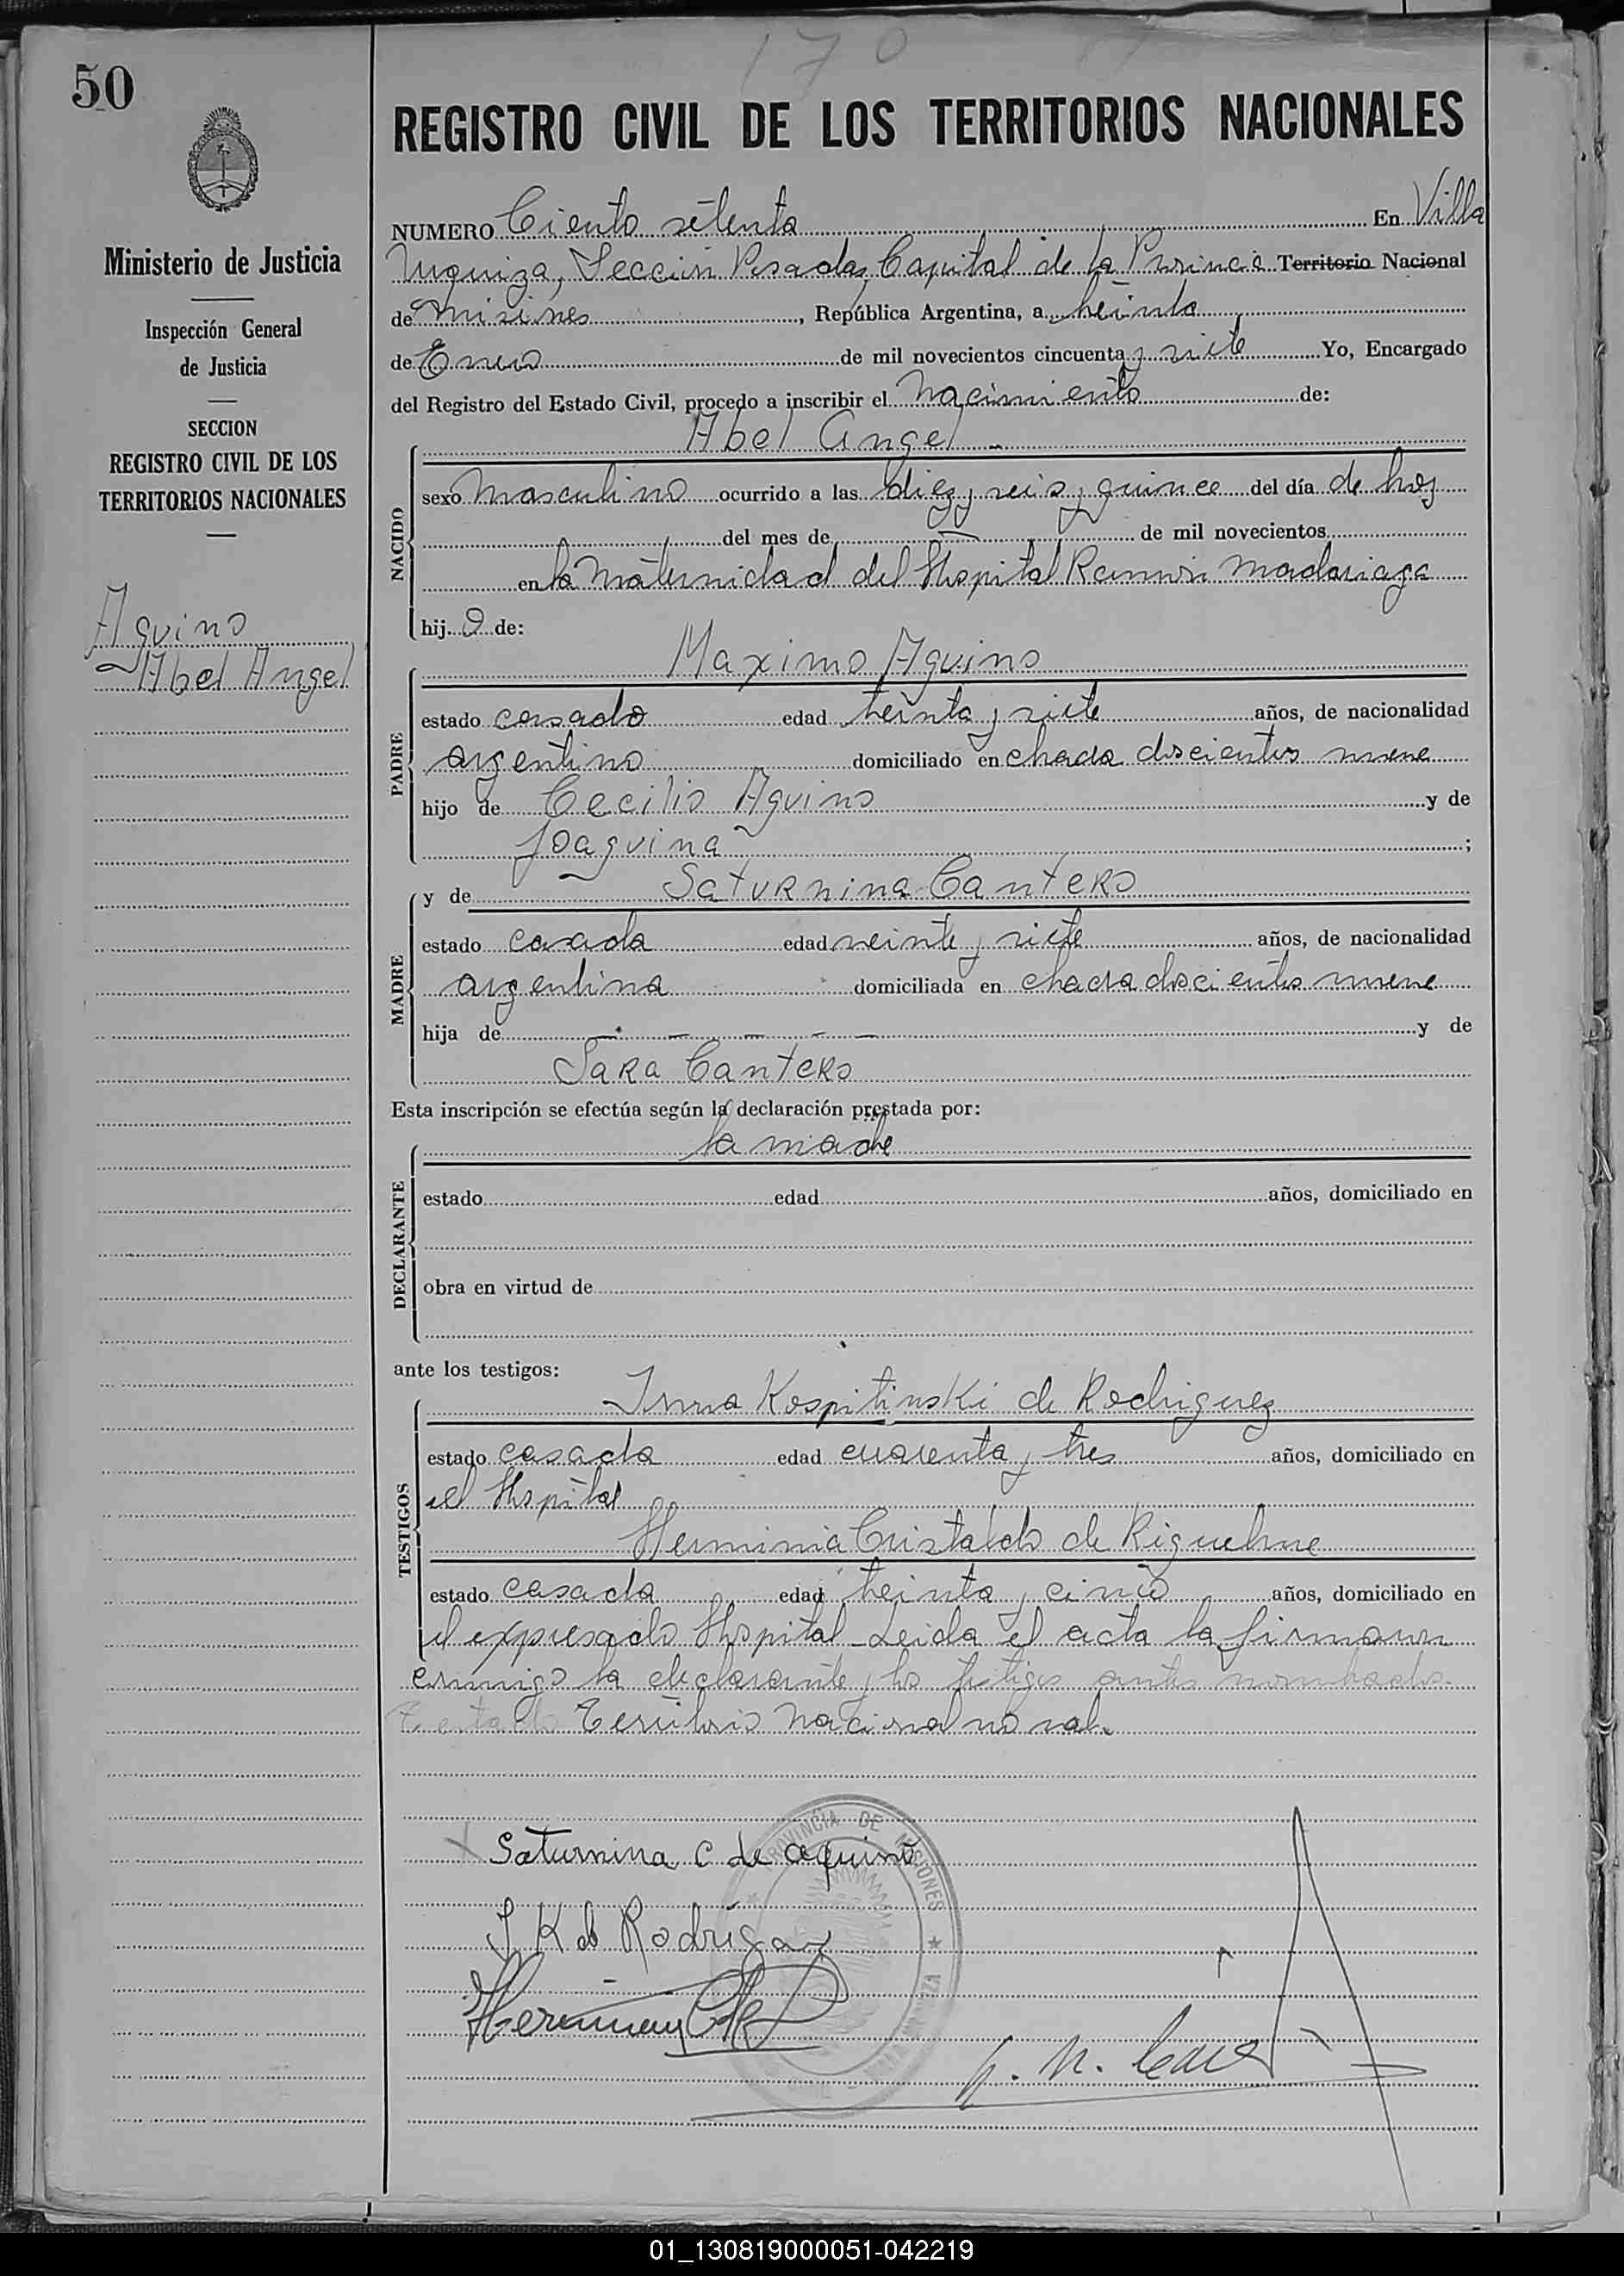 170
50
REGISTRO CIVIL DE LOS TERRITORIOS NACIONALES
Ministerio de Justicia
Inspección General
de Justicia
SECCION
REGISTRO CIVIL DE LOS
TERRITORIOS NACIONALES
Aquino
Abel Angel
NUMERO Ciento setenta En Villa
Urquiza, Sección Posadas Capital de la Provincia Territorio Nacional
de Misiones, República Argentina, a treinta
de Enero de mil novecientos cincuenta y siete Yo, Encargado
del Registro del Estado Civil, procedo a inscribir el Nacimiento de:
Abel Angel
NACIDO
sexo masculino ocurrido a las diez y seis y quince del día de hoy
del mes de de mil novecientos
en la Maternidad del Hospital Ramón Madariaga
hijo de:
Maximo Aquino
PADRE
estado casado edad treinta y siete años, de nacionalidad
argentino domiciliado en chacra doscientos nueve
hijo de Cecilio Aquino y de
Joaquina ;
y de Saturnina Cantero
MADRE
estado casada edad veinte y siete años, de nacionalidad
argentina domiciliada en chacra doscientos nueve
hija de - - - - - y de
Sara Cantero
Esta inscripción se efectúa según la declaración prestada por:
la madre
DECLARANTE
estado edad años, domiciliado en
obra en virtud de
ante los testigos:
Irma Kospitinski de Rodriguez
TESTIGOS
estado casada edad cuarenta y tres años, domiciliado en
el Hospital
Herminia Cristaldo de Riquelme
estado casada edad treinta y cinco años, domiciliado en
el expresado Hospital - Leida el acta la firmaron
conmigo la declarante y los testigos antes nombrados.
Testado Territorio Nacional no vale
Saturnina C de aquino
I K de Rodríguez
PROVINCIA DE MISIONES
01_130819000051-042219